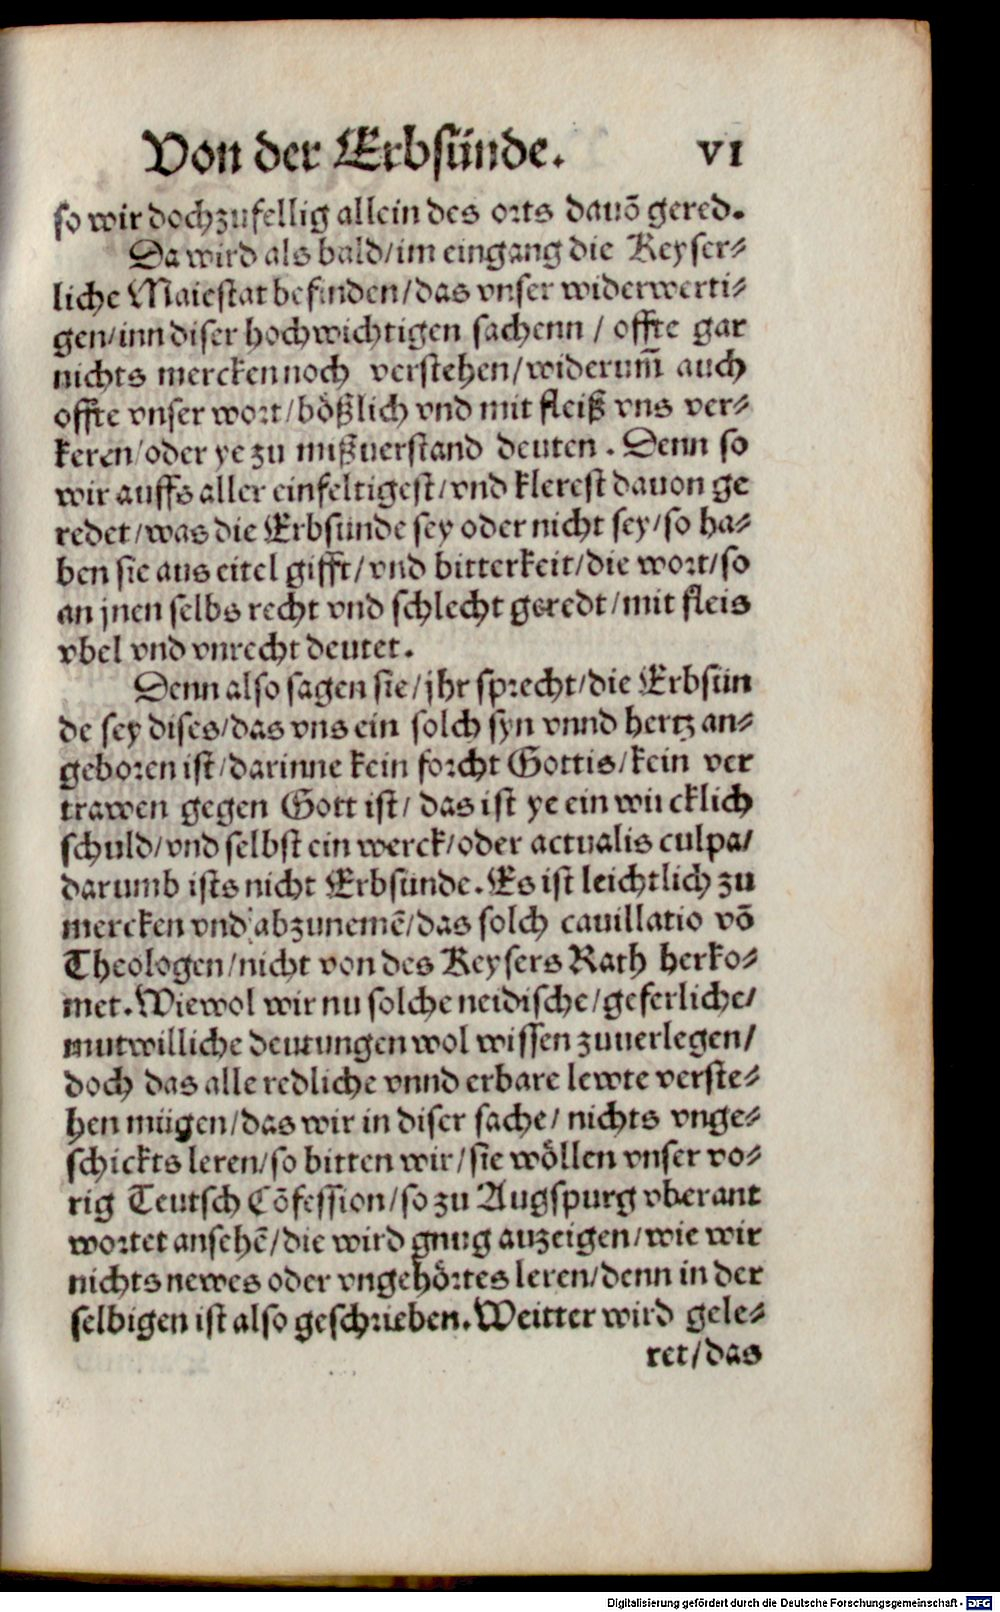 Von der Erbsünde. VI
so wir doch zufellig allein des orts dauõ gered.
Da wird als bald/im eingang die Keyser⸗
liche Maiestat befinden/das vnser widerwerti⸗
gen/inn diser hochwichtigen sachenn / offte gar
nichts mercken noch verstehen/widerum̃ auch
offte vnser wort/bößlich vnd mit fleiß vns ver⸗
keren/oder ye zu mißuerstand deuten. Denn so
wir auffs aller einfeltigest/vnd klerest dauon ge
redet/was die Erbsünde sey oder nicht sey/so ha⸗
ben sie aus eitel gifft/vnd bitterkeit/die wort/so
an jnen selbs recht vnd schlecht geredt/mit fleis
vbel vnd vnrecht deutet.
Denn also sagen sie/jhr sprecht/die Erbsün
de sey dises/das vns ein solch syn vnnd hertz an⸗
geboren ist/darinne kein forcht Gottis/kein ver
trawen gegen Gott ist/ das ist ye ein wücklich
schuld/vnd selbst ein werck/oder actualis culpa/
darumb ists nicht Erbsünde. Es ist leichtlich zu
mercken vnd abzunemẽ/das solch cauillatio võ
Theologen/nicht von des Keysers Rath herko⸗
met. Wiewol wir nu solche neidische/geferliche/
mutwilliche deutungen wol wissen zuuerlegen/
doch das alle redliche vnnd erbare lewte verste⸗
hen mügen/das wir in diser sache/ nichts vnge⸗
schickts leren/so bitten wir/sie wöllen vnser vo⸗
rig Teutsch Cõfession/so zu Augspurg vberant
wortet ansehẽ/die wird gnug anzeigen/wie wir
nichts newes oder vngehörtes leren/denn in der
selbigen ist also geschrieben. Weitter wird gele⸗
ret/das
Digitalisierung gefördert durch die Deutsche Forschungsgemeinschaft - DFG